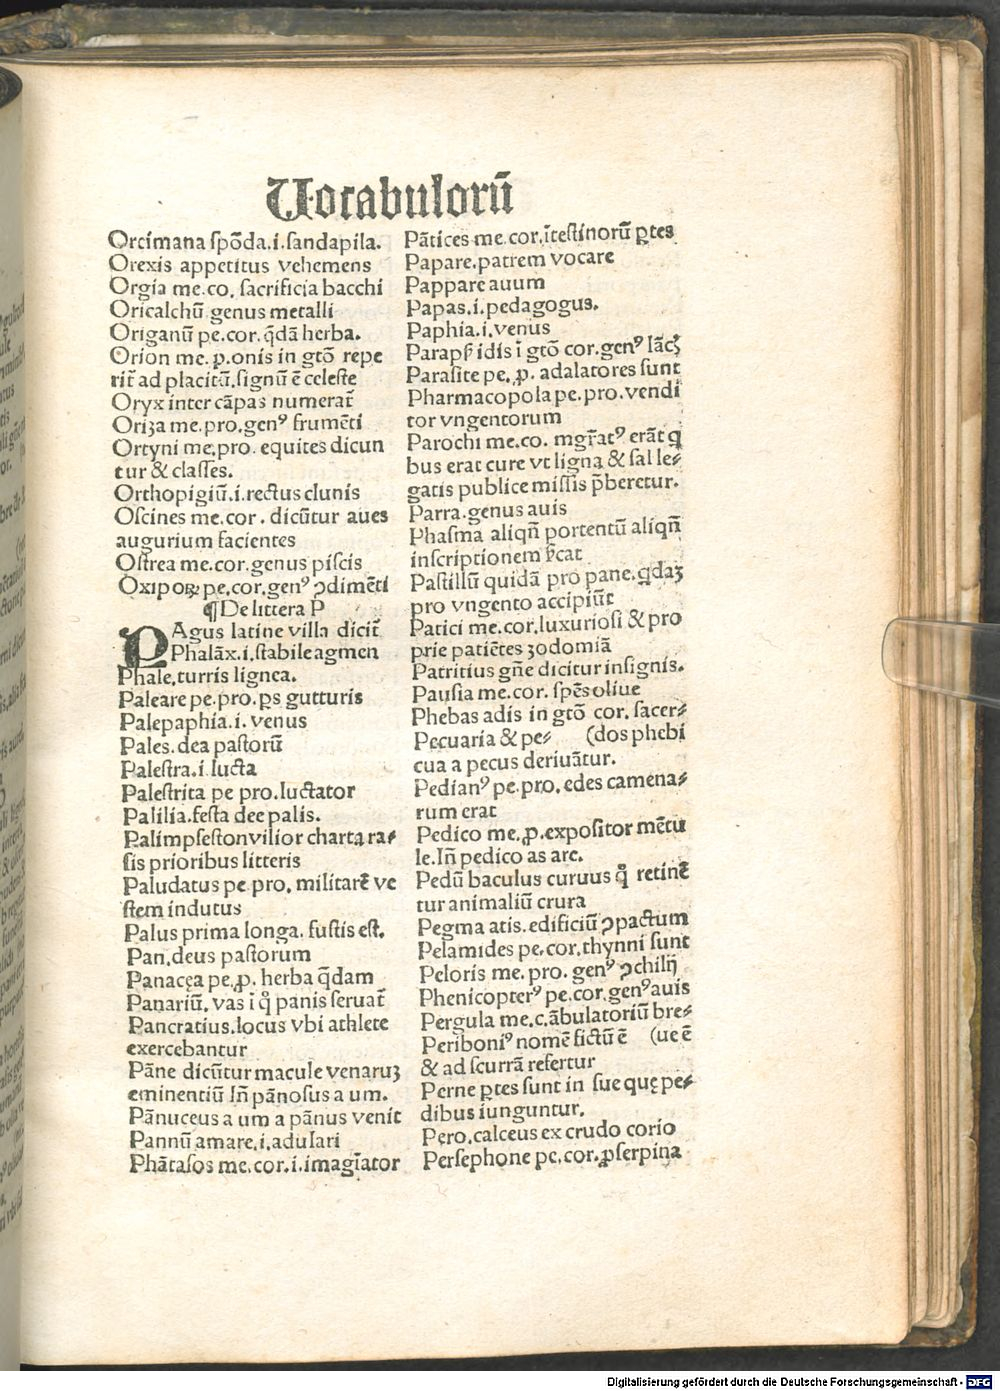 Vocabulorū
Orcimana spōda.i.sandapila.
Orexis appetitus vehemens
Orgia me.co. sacrificia bacchi
Oricalchū genus metalli
Origanū pe.cor.q̄dā herba.
Orion me.ꝓ.onis in gtō repe
rit̄ ad placitū.signū ē celeste
Oryx inter cāpas numerat̄
Oriza me.pro.genꝰ frumēti
Ortyni me.pro. equites dicun
tur & classes.
Orthopigiū.i.rectus clunis
Oscines me.cor. dicūtur aues
augurium facientes
Ostrea me.cor.genus piscis
Oxipoꝝ pe.cor.genꝰ ↄdimēti
¶ De littera P
PAgus latine villa dicit̄
Phalāx.i.stabile agmen
Phale.turris lignea.
Paleare pe.pro.ꝑs gutturis
Palepaphia.i.venus
Pales.dea pastorū
Palestra.i.lucta
Palestrita pe pro.luctator
Palilia.festa dee palis.
Palimpseston vilior charta ra⸗
sis prioribus litteris
Paludatus pe pro. militarē ve
stem indutus
Palus prima longa. fustis est.
Pan.deus pastorum
Panacea pe.ꝓ. herba q̄dam
Panariū. vas i q̊ panis seruat̄
Pancratius.locus vbi athlete
exercebantur
Pāne dicūtur macule venaruꝫ
eminentiū Iñ pānosus a um.
Pānuceus a um a pānus venit
Pannū amare.i.adulari
Phātasos me.cor.i.imagiātor
Pātices me.cor.ītestinorū ꝑtes
Papare.patrem vocare
Pappare auum
Papas.i.pedagogus.
Paphia.i.venus
idis ī gtō cor.genꝰ lācꝫ
Parasite pe.ꝓ. adalatores sunt
Pharmacopola pe.pro.vendi
tor vngentorum
Parochi me.co. mgr̄atꝰ erāt q̄
bus erat cure vt ligna & sal le⸗
gatis publice missis p̄beretur.
Parra.genus auis
Phasma aliqñ portentū aliqñ
inscriptionem
Pastillū quidā pro pane.q̄daꝫ
pro vngento accipiūt
Patici me.cor.luxuriosi & pro
prie patiētes zodomiā
Patritius gñe dicitur insignis.
Pausia me.cor. spēs oliue
Phebas adis in gtō cor. sacer⸗
Pecuaria & pe⸗ (dos phebi
cua a pecus deriuātur.
Pedianꝰ pe.pro.edes camena⸗
rum erat
Pedico me.ꝓ.expositor mētu
le.Iñ pedico as are.
Pedū baculus curuus q̊ retinē
tur animaliū crura
Pegma atis.edificiū ↄpactum
Pelamides pe.cor.thynni sunt
Peloris me.pro. genꝰ ↄchilij
Phenicopterꝰ pe.cor.genꝰ auis
Pergula me.c.ābulatoriū bre⸗
Periboniꝰ nomē fictū ē (ue ē
& ad scurrā refertur
Perne ꝑtes sunt in sue quę pe⸗
dibus iunguntur.
Pero.calceus ex crudo corio
Persephone pe.cor.ꝓserpina
Digitalisierung gefördert durch die Deutsche Forschungsgemeinschaft - DFG